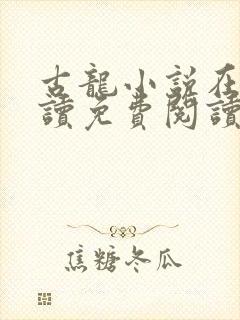 古龍小說在
讀免費閱讀
焦糖冬瓜